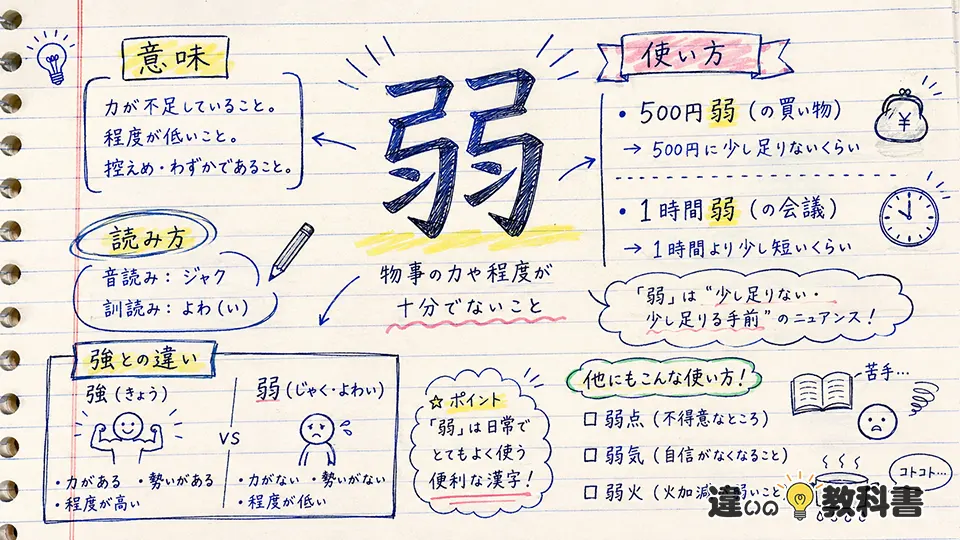 意味
力が不足していること。
程度が低いこと。
控えめ・わずかであること。
読み方
音読み：ジャク
訓読み：よわ（い）
弱
物事の力や程度が
十分でないこと
使い方
・500円弱（の買い物）
→ 500円に少し足りないくらい
¥
・1時間弱（の会議）
→ 1時間より少し短いくらい
「弱」は“少し足りない・
少し足りる手前”のニュアンス！
強との違い
強（きょう）
・力がある ・勢いがある
・程度が高い
VS
弱（じゃく・よわい）
・力がない ・勢いがない
・程度が低い
☆ ポイント
「弱」は日常で
とてもよく使う
便利な漢字！
他にもこんな使い方！
□ 弱点（不得意なところ）
□ 弱気（自信がなくなること）
□ 弱火（火加減 弱いこと
苦手…
コトコト…
違いの教科書